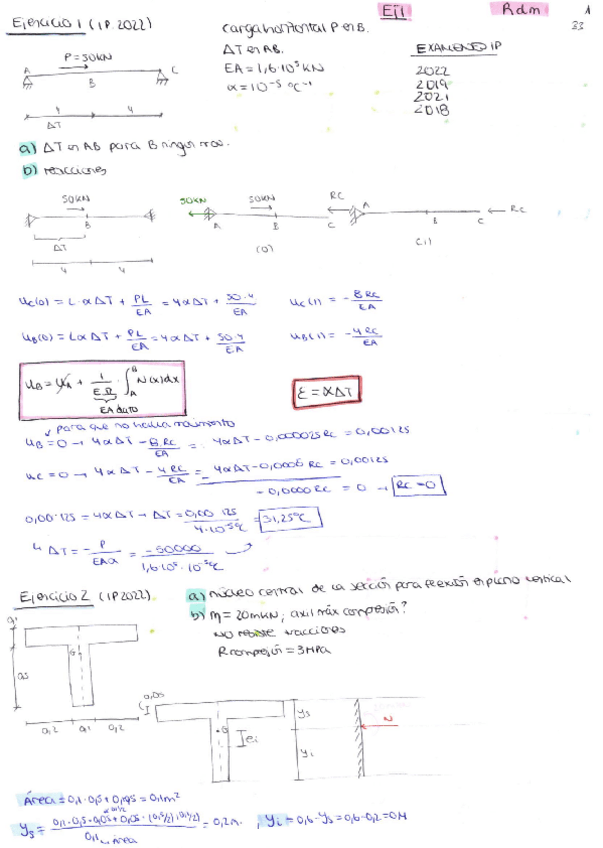 Ej1
Rdm
33
Ejercicio 1 (1P.2022)
Carga horizontal P en B.
ΔT en AB.
EA = 1,6·10⁵ kN
α = 10⁻⁵ ºC⁻¹
EXAMENES 1P
2022
2019
2021
2018
P = 50KN
A
B
C
4
4
ΔT
a) ΔT en AB para B
b) reacciones
50KN
B
ΔT
4
4
50KN
50KN
RC
A
B
C
(0)
A
B
C
RC
(1)
uc(0) = L·αΔT + PL/EA = 4αΔT + 50·4/EA
uc(1) = -8RC/EA
uB(0) = LαΔT + PL/EA = 4αΔT + 50·4/EA
uB(1) = -4RC/EA
uB = uA + 1/EΩ · ∫ᴬᴮ N(x)dx
EA dato
ε = αΔT
para que no haya movimiento
uB = 0 → 4αΔT - 8RC/EA = 4αΔT - 0,000025RC = 0,00125
uc = 0 → 4αΔT - 4RC/EA = 4αΔT - RC = 0,00125
RC = 0 → RC = 0
0,00125 = 4αΔT → ΔT = 0,00125/4·10⁻⁵ºC = 31,25ºC
↳ ΔT = -P/EAα = -50000/1,6·10⁵·10⁻⁵ºC
Ejercicio 2 (1P2022)
a) Núcleo central de la sección para flexión en plano vertical
b) M = 20mkN, axil máx compresión?
NO resiste tracciones
R compresión = 3MPa
G
0,2
0,1
0,2
0,05
G
ei
ys
yi
N
Área = 0,1·0,5 + = 0,1m²
ys = = 0,2m , yi = 0,6-ys = 0,6-0,2 = 0,4
0,1 ↳ área